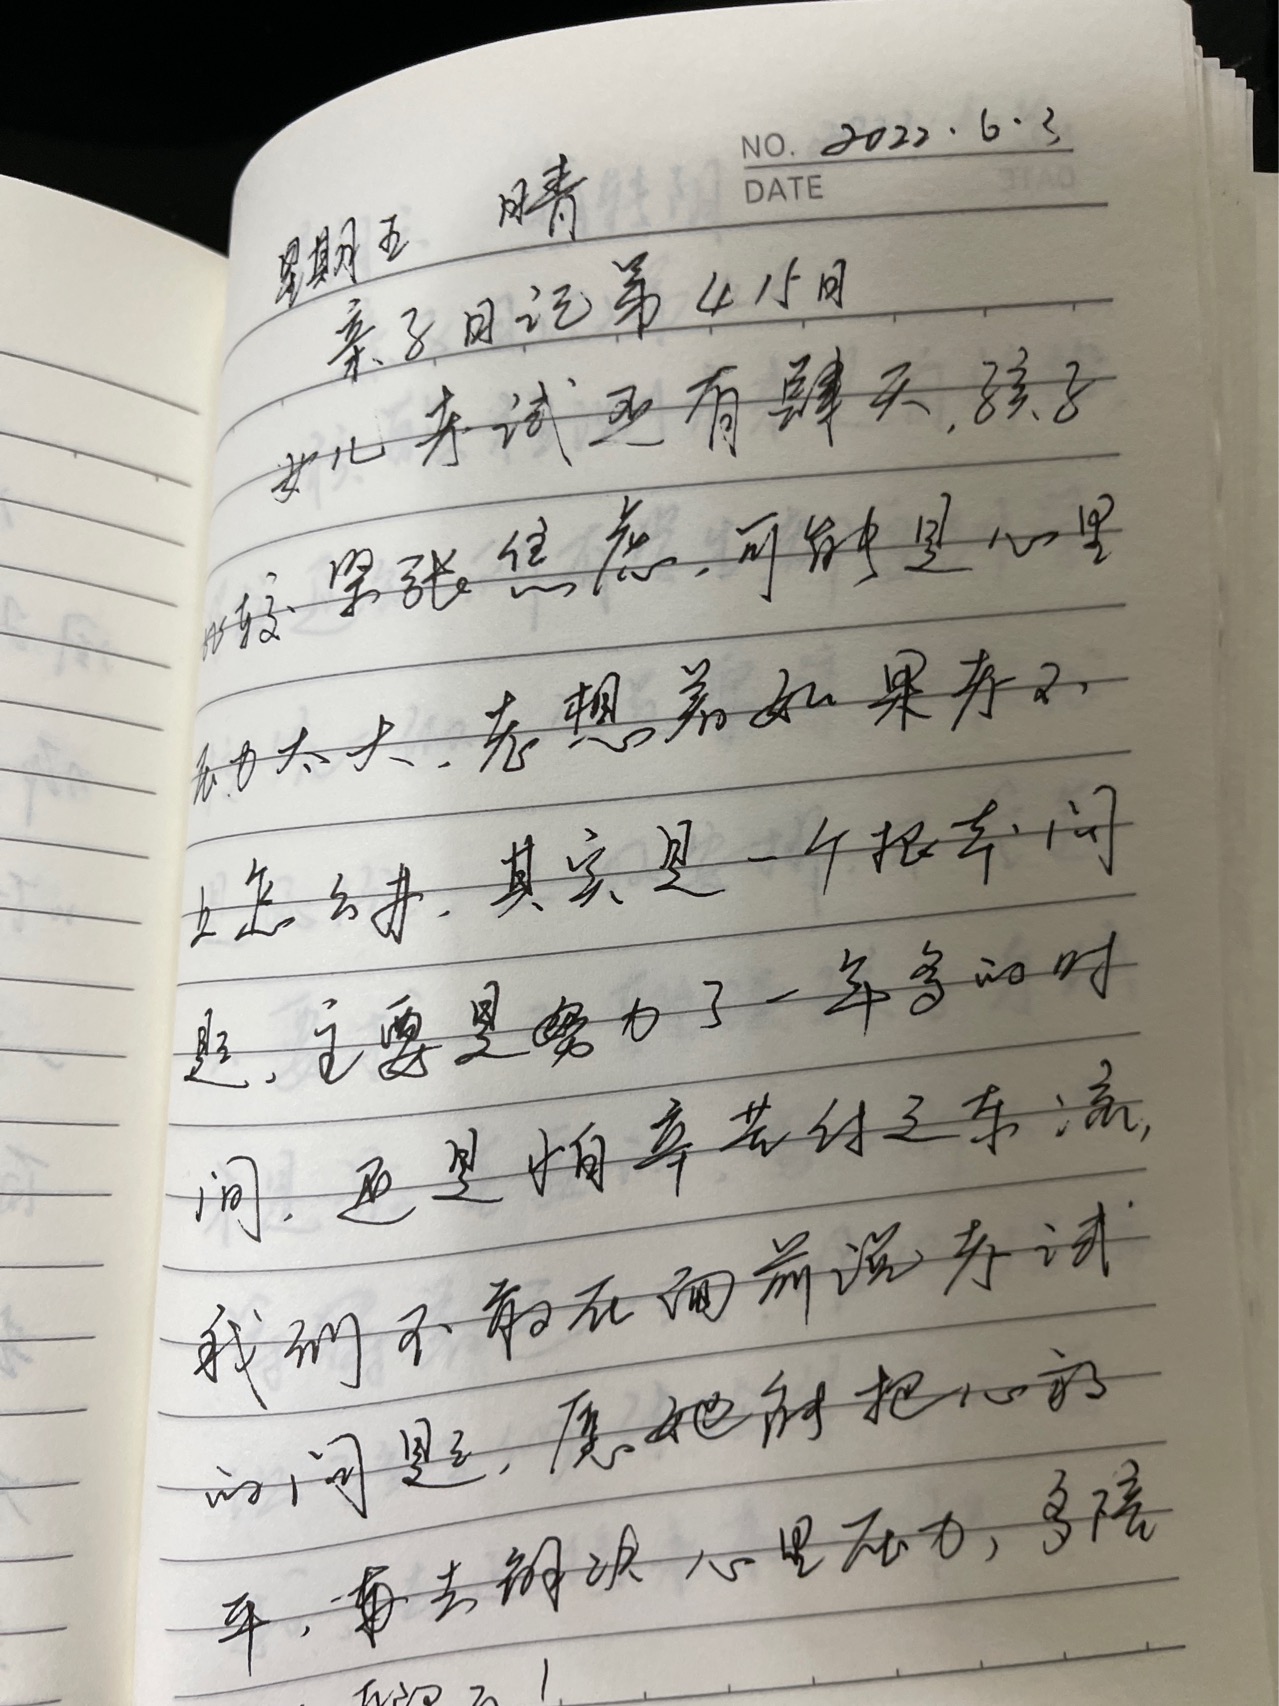 NO. 2022.6.3
DATE
星期五 晴
亲子日记第415日
女儿考试还有肆天,孩子
比较紧张焦虑,可能是心里
压力太大,老想着如果考不
上怎么办,其实是一个根本问
题,主要是努力了一年多的时
间,还是怕辛苦付之东流,
我们不敢在面前说考试
的问题,愿她能把心放
平,再去解决心里压力,多陪